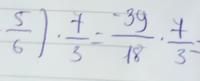 5/6) · 7/3 = -39/18 · 7/3 =